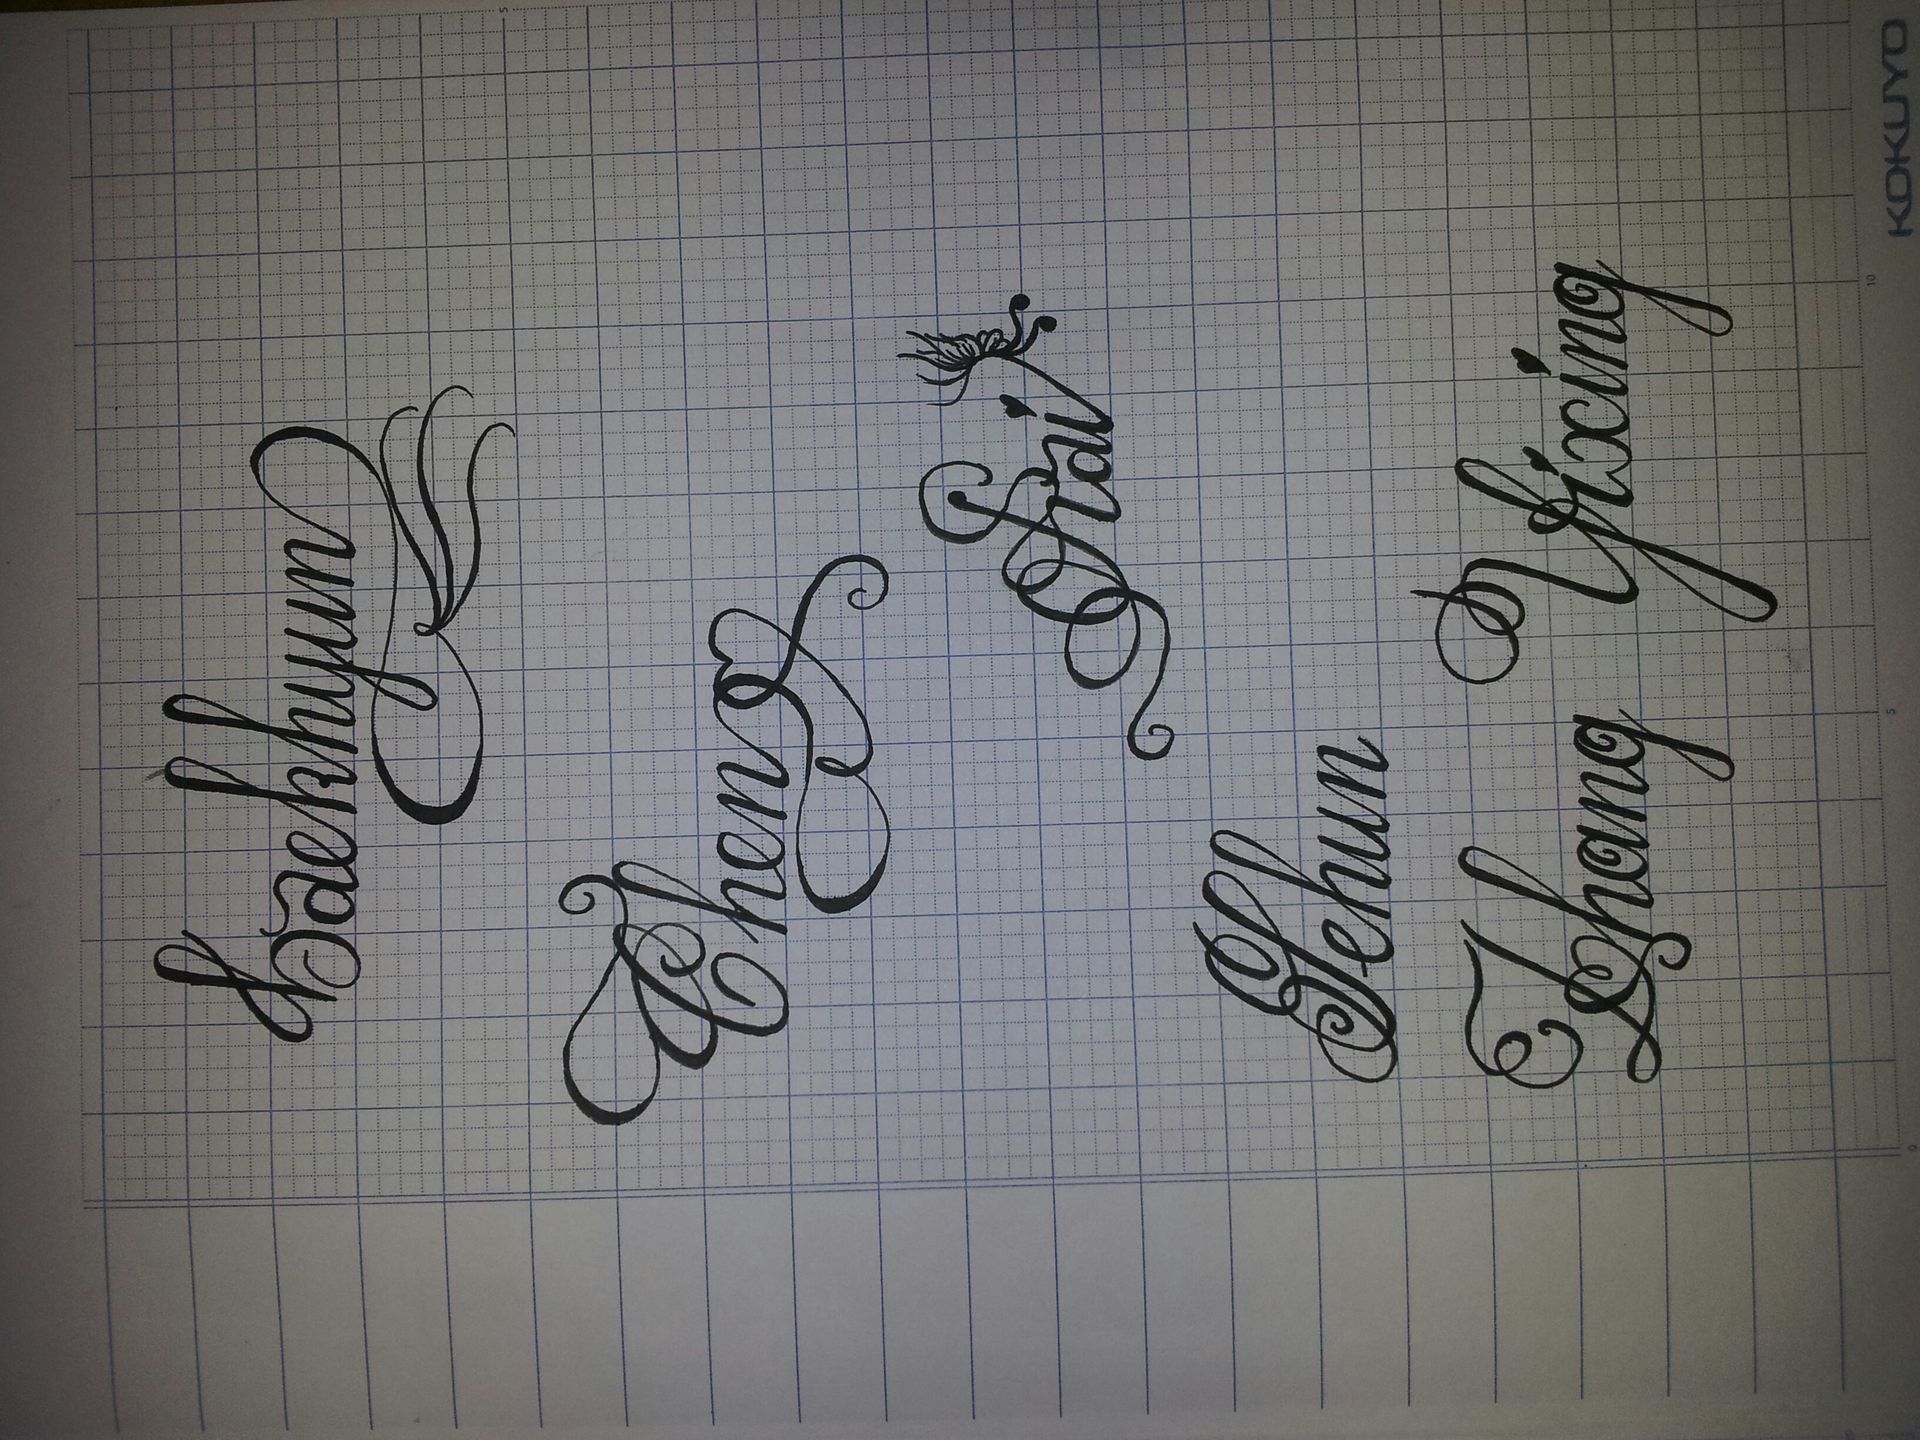 Baekhyun
Chen
Kai
Sehun
Zhang Yixing
KOKUYO
5
10
5
0